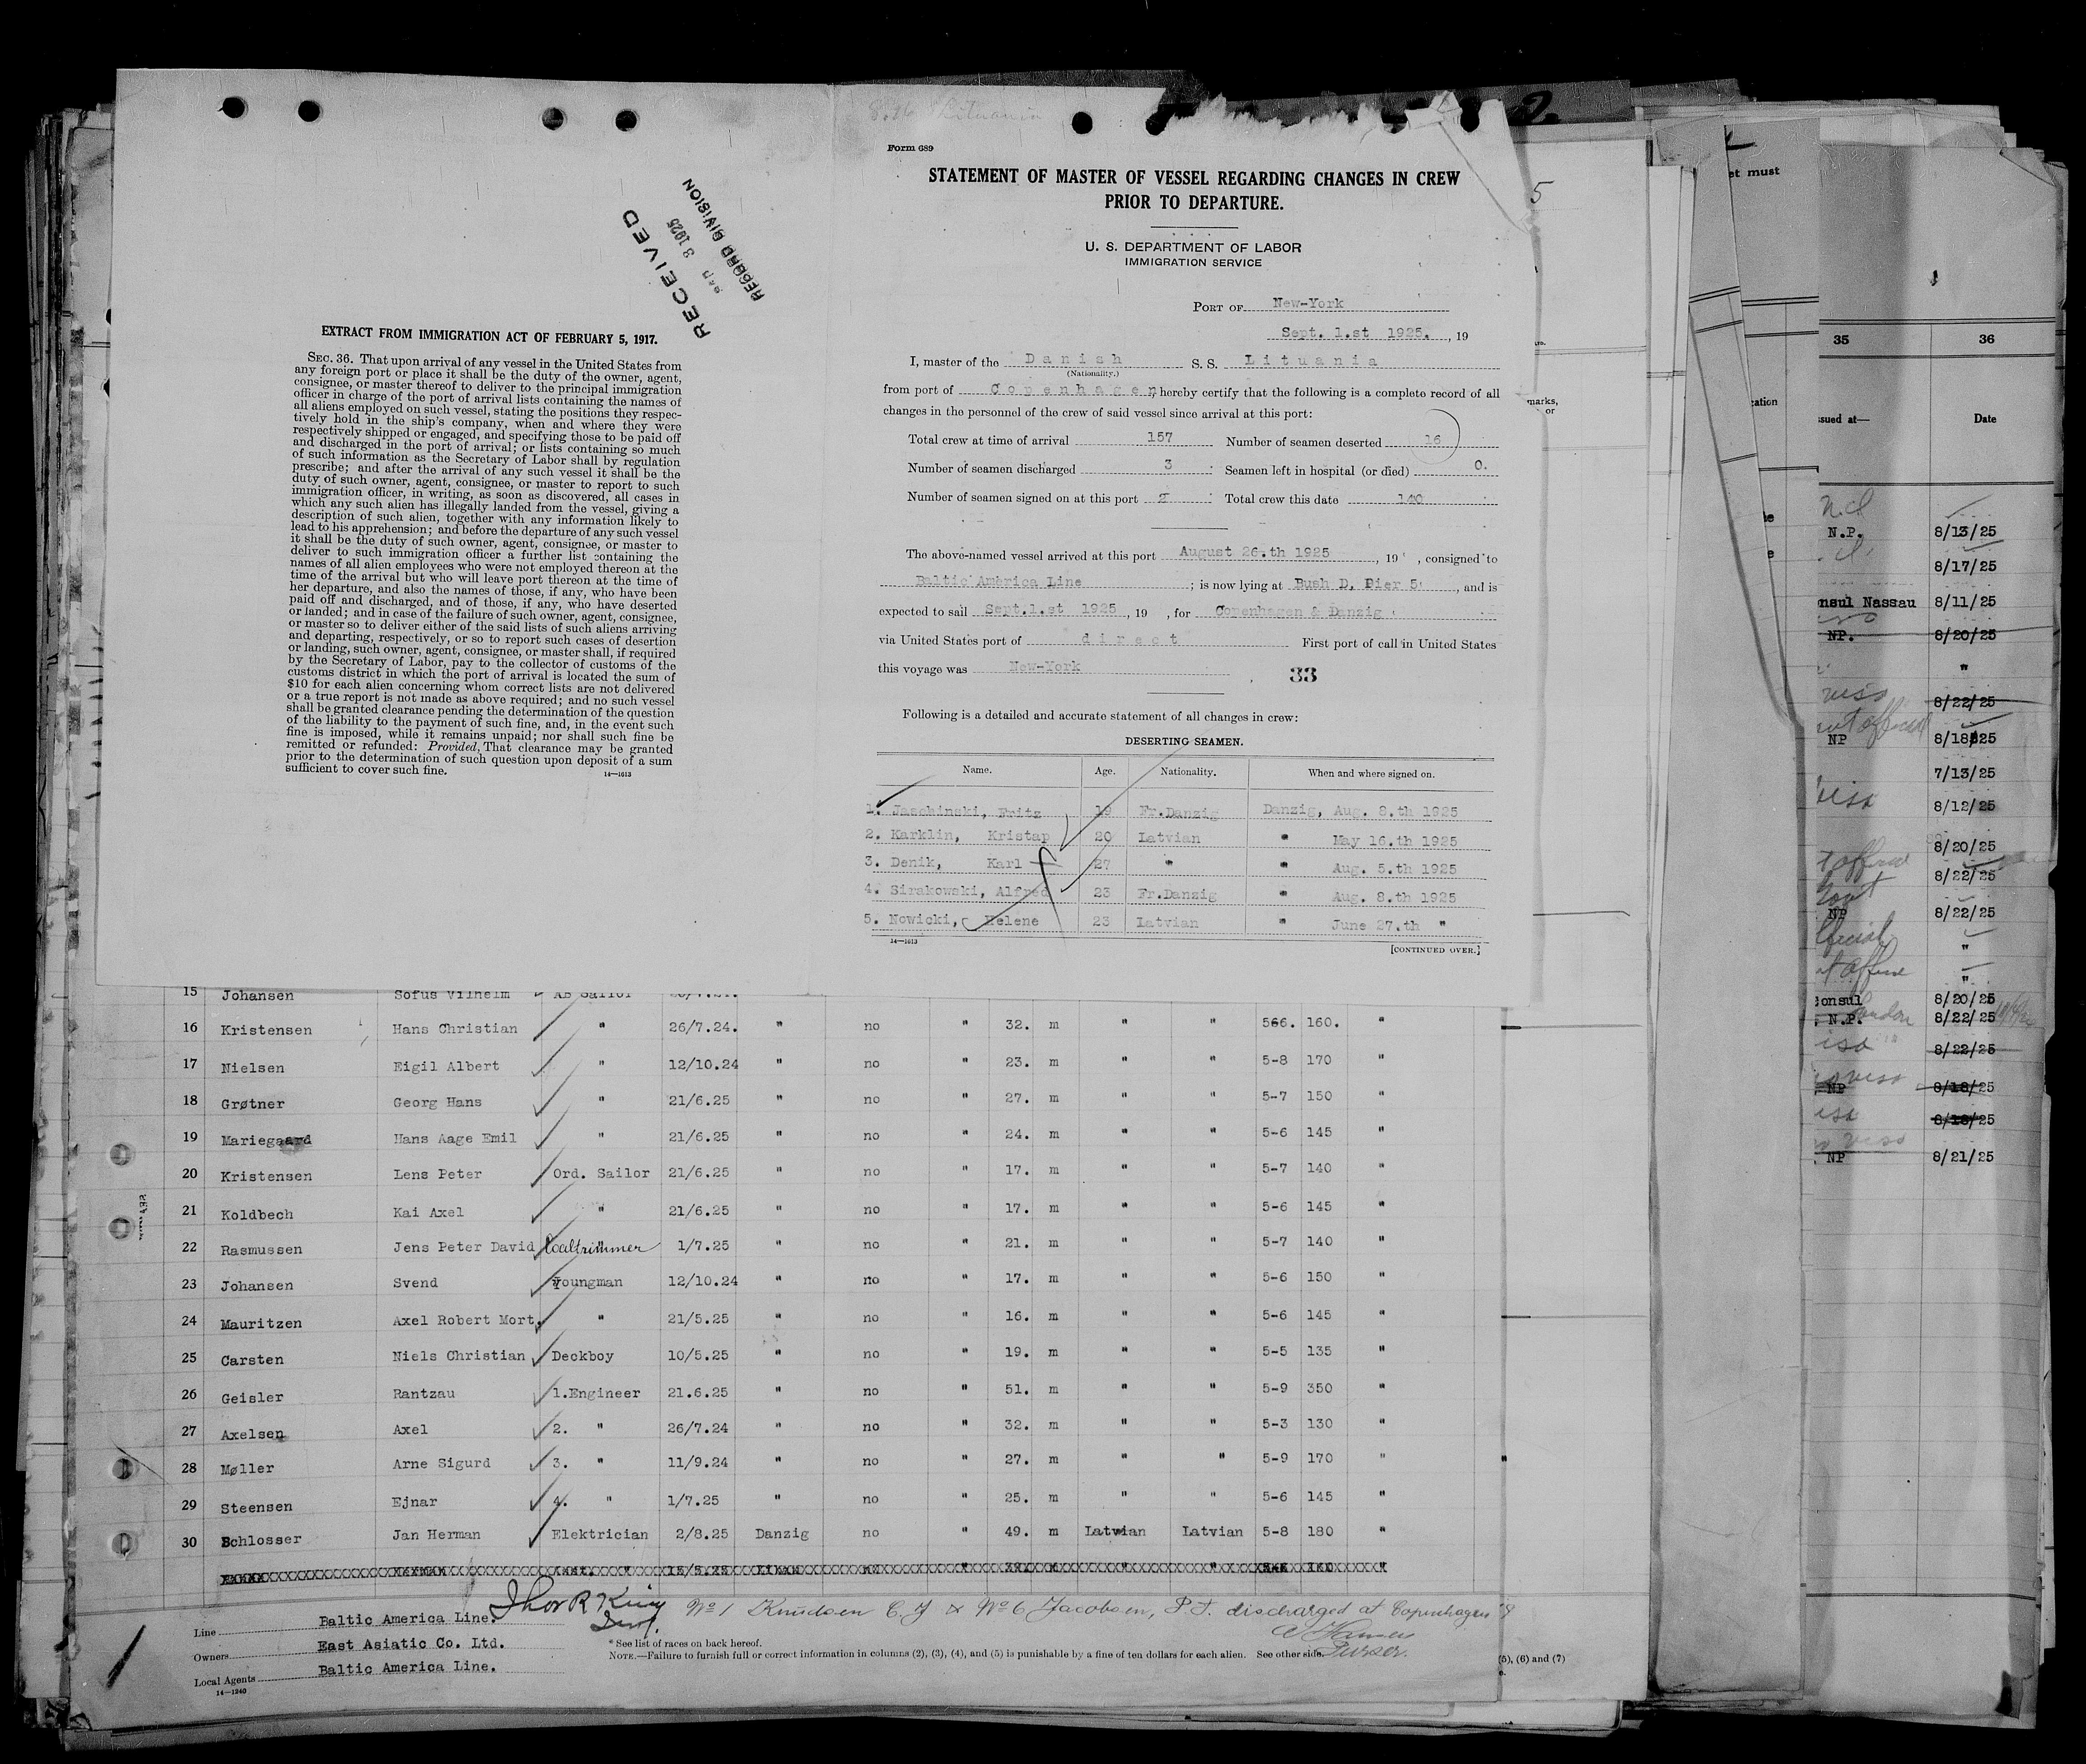 RECEIVED
SEP 3 1925
RECORD DIVISION
EXTRACT FROM IMMIGRATION ACT OF FEBRUARY 5, 1917.
SEC. 36. That upon arrival of any vessel in the United States from
any foreign port or place it shall be the duty of the owner, agent,
consignee, or master thereof to deliver to the principal immigration
officer in charge of the port of arrival lists containing the names of
all aliens employed on such vessel, stating the positions they respec-
tively hold in the ship's company, when and where they were
respectively shipped or engaged, and specifying those to be paid off
and discharged in the port of arrival; or lists containing so much
of such information as the Secretary of Labor shall by regulation
prescribe; and after the arrival of any such vessel it shall be the
duty of such owner, agent, consignee, or master to report to such
immigration officer, in writing, as soon as discovered, all cases in
which any such alien has illegally landed from the vessel, giving a
description of such alien, together with any information likely to
lead to his apprehension; and before the departure of any such vessel
it shall be the duty of such owner, agent, consignee, or master to
deliver to such immigration officer a further list containing the
names of all alien employees who were not employed thereon at the
time of the arrival but who will leave port thereon at the time of
her departure, and also the names of those, if any, who have been
paid off and discharged, and of those, if any, who have deserted
or landed; and in case of the failure of such owner, agent, consignee,
or master so to deliver either of the said lists of such aliens arriving
and departing, respectively, or so to report such cases of desertion
or landing, such owner, agent, consignee, or master shall, if required
by the Secretary of Labor, pay to the collector of customs of the
customs district in which the port of arrival is located the sum of
$10 for each alien concerning whom correct lists are not delivered
or a true report is not made as above required; and no such vessel
shall be granted clearance pending the determination of the question
of the liability to the payment of such fine, and, in the event such
fine is imposed, while it remains unpaid; nor shall such fine be
remitted or refunded: Provided, That clearance may be granted
prior to the determination of such question upon deposit of a sum
sufficient to cover such fine.
14—1613
8.26 Lituania
Form 689
STATEMENT OF MASTER OF VESSEL REGARDING CHANGES IN CREW
PRIOR TO DEPARTURE.
U. S. DEPARTMENT OF LABOR
IMMIGRATION SERVICE
PORT OF New-York
Sept. 1.st 1925. , 19
I, master of the Danish S. S. Lituania
(Nationality.)
from port of Copenhagen, hereby certify that the following is a complete record of all
changes in the personnel of the crew of said vessel since arrival at this port:
Total crew at time of arrival 157 Number of seamen deserted 16
Number of seamen discharged 3 Seamen left in hospital (or died) 0.
Number of seamen signed on at this port Total crew this date 140
The above-named vessel arrived at this port August 26.th 1925 , 19 , consigned to
Baltic America Line ; is now lying at Bush D, Pier 5 , and is
expected to sail Sept.1.st 1925 , 19 , for Copenhagen & Danzig
via United States port of direct First port of call in United States
this voyage was New-York
33
Following is a detailed and accurate statement of all changes in crew:
DESERTING SEAMEN.
Name. Age. Nationality. When and where signed on.
1. Jaschinski, Fritz 19 Fr.Danzig Danzig, Aug. 8.th 1925
2. Karklin, Kristap 20 Latvian " May 16.th 1925
3. Denik, Karl 27 " " Aug. 5.th 1925
4. Sirakowski, Alfred 23 Fr.Danzig " Aug. 8.th 1925
5. Nowicki, Helene 23 Latvian " June 27.th "
14—1613 [CONTINUED OVER.]
15 Johansen Sofus Vilhelm AB Sailor
16 Kristensen Hans Christian " 26/7.24. " no " 32. m " " 566. 160. "
17 Nielsen Eigil Albert " 12/10.24 " no " 23. m " " 5-8 170 "
18 Grøtner Georg Hans " 21/6.25 " no " 27. m " " 5-7 150 "
19 Mariegaard Hans Aage Emil " 21/6.25 " no " 24. m " " 5-6 145 "
20 Kristensen Lens Peter Ord. Sailor 21/6.25 " no " 17. m " " 5-7 140 "
21 Koldbech Kai Axel " 21/6.25 " no " 17. m " " 5-6 145 "
22 Rasmussen Jens Peter David Coaltrimmer 1/7.25 " no " 21. m " " 5-7 140 "
23 Johansen Svend Youngman 12/10.24 " no " 17. m " " 5-6 150 "
24 Mauritzen Axel Robert Mort. " 21/5.25 " no " 16. m " " 5-6 145 "
25 Carsten Niels Christian Deckboy 10/5.25 " no " 19. m " " 5-5 135 "
26 Geisler Rantzau 1.Engineer 21.6.25 " no " 51. m " " 5-9 350 "
27 Axelsen Axel 2. " 26/7.24 " no " 32. m " " 5-3 130 "
28 Møller Arne Sigurd 3. " 11/9.24 " no " 27. m " " 5-9 170 "
29 Steensen Ejnar 4. " 1/7.25 " no " 25. m " " 5-6 145 "
30 Schlosser Jan Herman Elektrician 2/8.25 Danzig no " 49. m Latvian Latvian 5-8 180 "
No 1 Knudsen C.J & No 6 Jacobsen, P.J. discharged at Copenhagen
Purser.
Line Baltic America Line.
Owners East Asiatic Co. Ltd.
Local Agents Baltic America Line.
14—1240
* See list of races on back hereof.
NOTE.—Failure to furnish full or correct information in columns (2), (3), (4), and (5) is punishable by a fine of ten dollars for each alien. See other side.
(5), (6) and (7)
5
et must
marks,
or
cation
35 36
ssued at— Date
N.P. 8/13/25
8/17/25
onsul Nassau 8/11/25
NP. 8/20/25
"
8/22/25
NP 8/18/25
7/13/25
8/12/25
8/20/25
8/22/25
NP 8/22/25
"
"
Consul 8/20/25
N.P. London 8/22/25
8/22/25
NP 8/18/25
8/18/25
NP 8/21/25